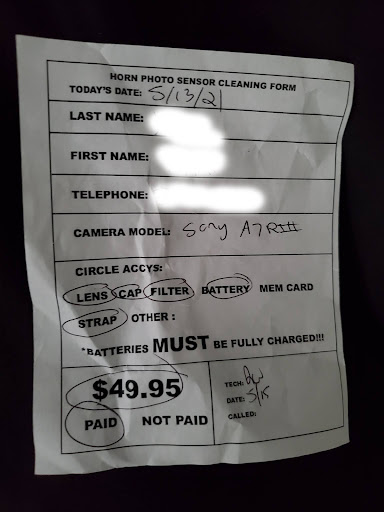 HORN PHOTO SENSOR CLEANING FORM
TODAY'S DATE: 5/13/21
LAST NAME:
FIRST NAME:
TELEPHONE:
CAMERA MODEL: Sony A7RIII
CIRCLE ACCYS:
LENS CAP FILTER BATTERY MEM CARD
STRAP OTHER :
*BATTERIES MUST BE FULLY CHARGED!!!
$49.95
PAID NOT PAID
TECH:
DATE: 5/15
CALLED: